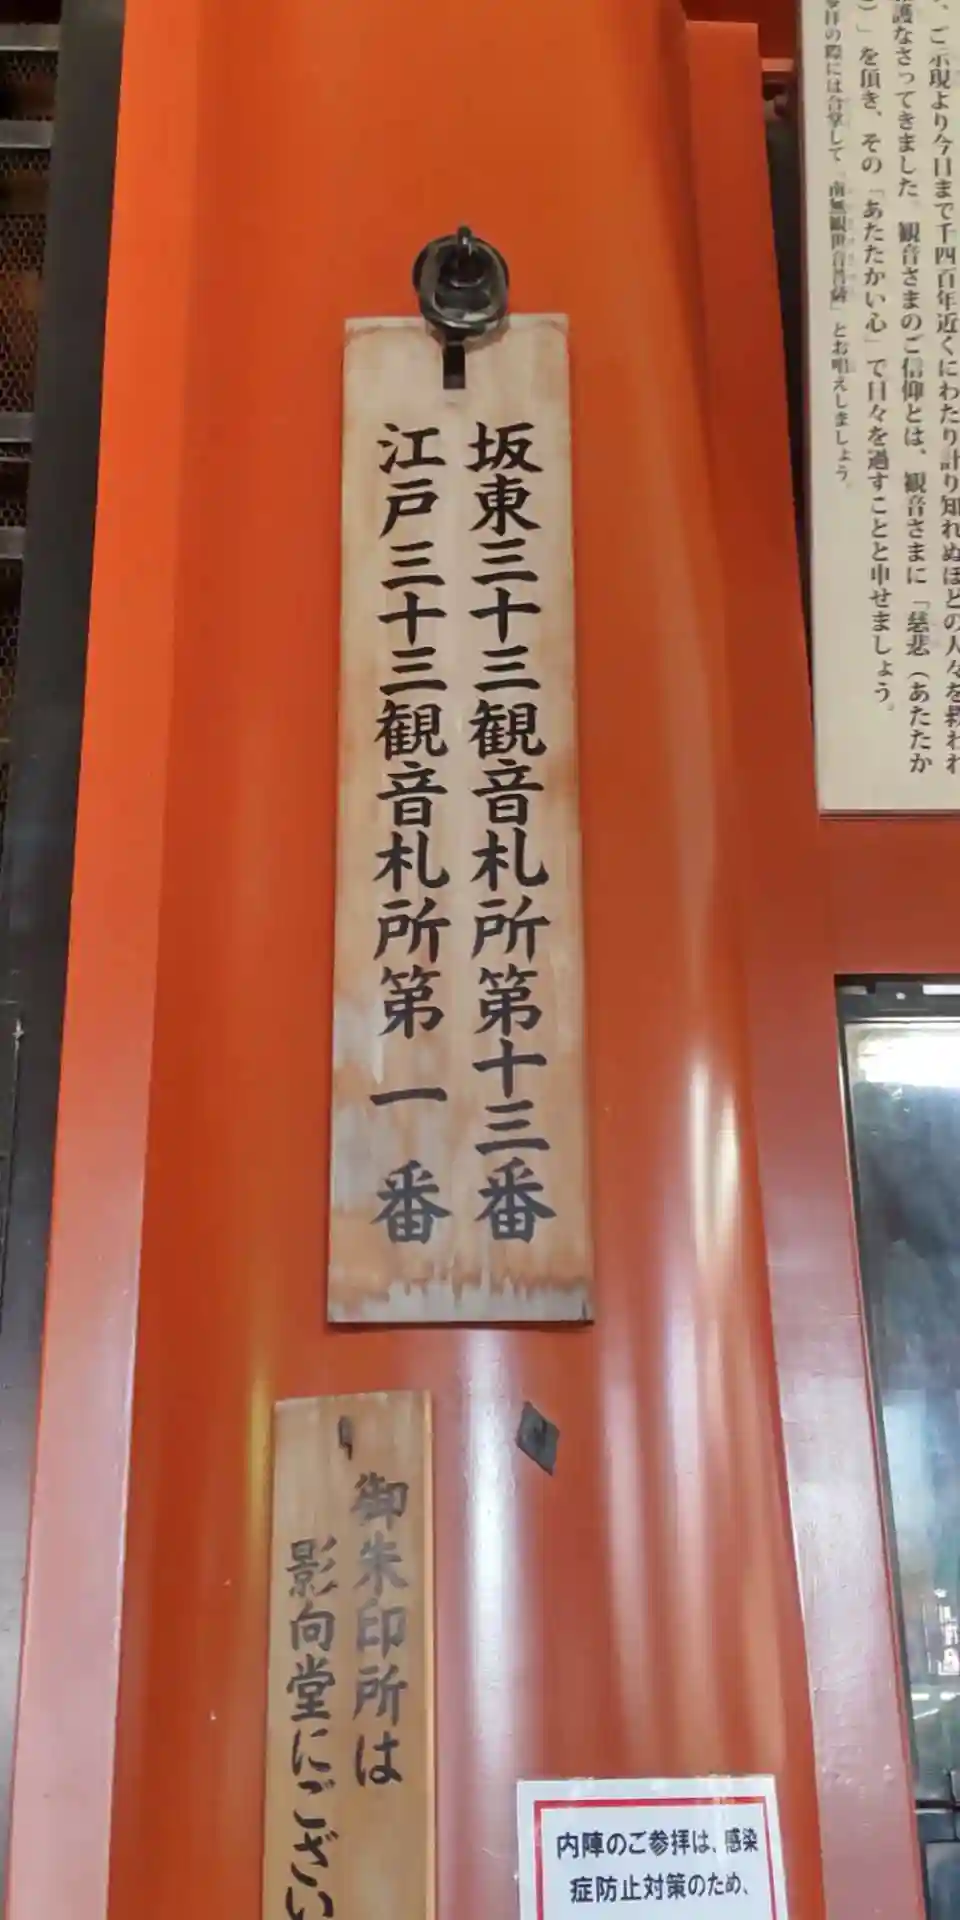 、ご示現より今日まで千四百年近くにわたり計り知れぬほどの人々を救われ
護なさってきました。観音さまのご信仰とは、観音さまに「慈悲(あたたか
」を頂き、その「あたたかい心」で日々を過すことと申せましょう。
の際には合掌して「南無観世音菩薩」とお唱えしましょう。
坂東三十三観音札所第十三番
江戸三十三観音札所第一番
御朱印所は
影向堂にござい
内陣のご参拝は、感染
症防止対策のため、